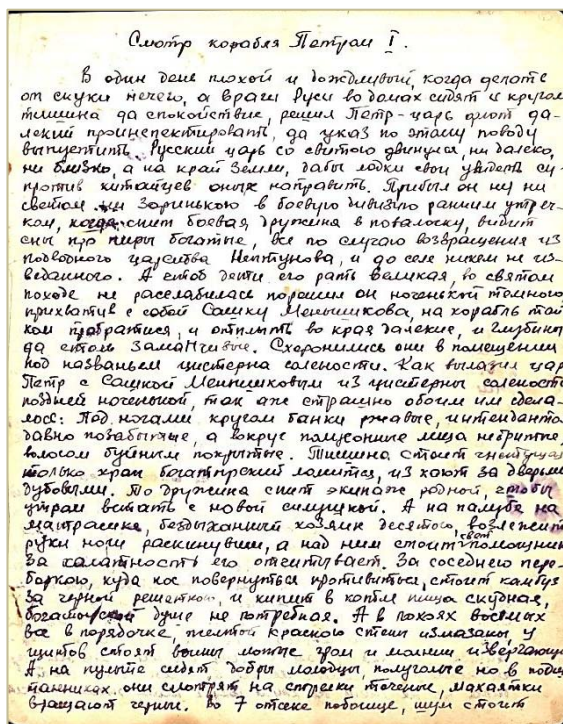 Смотр корабля Петром I.
В один день плохой и дождливый, когда делать
от скуки нечего, а враги Руси во домах сидят и кругом
тишина да спокойствие, решил Петр-царь флот да-
лекий проинспектировать, да указ по этому поводу
выпустить. Русский царь со свитого двинулся, ни далеко,
ни близко, а на край Земли, дабы лодки свои увидеть су-
против китайцев оных направить. Прибыл он ну ни
светом ни Зоринькою в боевую дивизию ранним утреч-
ком, когда спит боевая дружина в повалочку, видит
сны про пиры богатые, все по случаю возвращения из
подводного царства Нептунова, и до селе никем не из-
веданного. А чтоб дети его рать великая, во святом
походе не расслабилась порешил он ноченькой темною
прихватив с собой Сашку Меньшикова, на корабль тай-
ком пробратися, и отплыть во края далекие, и глубины
да столь ЗамаНчивые. Схоронились они в помещении
под названьем цистерна солености. Как вылазил царь
Петр с Сашкой Меньшиковым из цистерны солености
поздней ноченькой, так аже страшно обоим им сдела-
лось: Под ногами кругом банки ржавые, интендантом
давно позабытые, а вокруг полусонные лица небритые,
волосом буйным покрытые. Тишина стоит гнетущая
только храп богатырский ломится, из кают за дверьми
дубовыми. То дружина спит экипаж родной, чтобы
утром встать с новой силушкой. А на палубе на
матрасике, бездыханный хозяин десятого, возлежит
руки ноги раскинувши, а над ним стоит свет помощник
За халатность его отсчитывает. За соседнею пере-
боркою, куда нос повернуться противиться, стоит камбуз
За черной решеткою, и кипит в котле пища скудная,
богатырской душе не потребная. А в покоях восьмых
все в порядочке, желтой краскою стены измазаны, у
щитов стоят воины лютые гром и молнии извергающие
А на пульте сидят добры молодцы, полуголые но в подш-
танниках, они смотрят на стрелки точеные, махаятки
вращают черные. Во 7 отсеке побоище, шум стоит